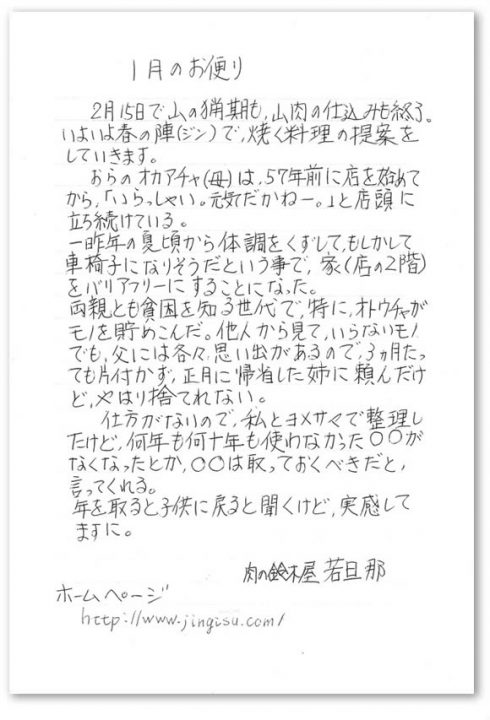 1月のお便り
2月15日で山の猟期も,山肉の仕込みも終了。
いよいよ春の陣(ジン)で,焼く料理の提案を
していきます。
おらのオカアチャ(母)は,57年前に店を始めて
から,「いらっしゃい。元気だかねー。」と店頭に
立ち続けている。
一昨年の夏頃から体調をくずして,もしかして
車椅子になりそうだという事で,家(店の2階)
をバリアフリーにすることになった。
両親とも貧困を知る世代で,特に,オトウチャが
モノを貯めこんだ。他人から見て,いらないモノ
でも,父には各々,思い出があるので,3ヵ月たっ
ても片付かず,正月に帰省した姉に頼んだけ
ど,やはり捨てれない。
仕方がないので,私とヨメサマで整理し
たけど,何年も何十年も使わなかった〇〇が
なくなったとか,〇〇は取っておくべきだと,
言ってくれる。
年を取ると子供に戻ると聞くけど,実感して
ますに。
肉の鈴木屋 若旦那
ホームページ
http://www.jingisu.com/